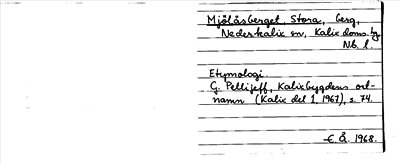 Mjölåsberget, Stora, berg,
Nederkalix sn, Kalix doms. bg
Nb. l
Etymologi.
G. Pellijeff, Kalixbygdens ort-
namn (Kalix del 1, 1967), s. 74.
E. Å. 1968.